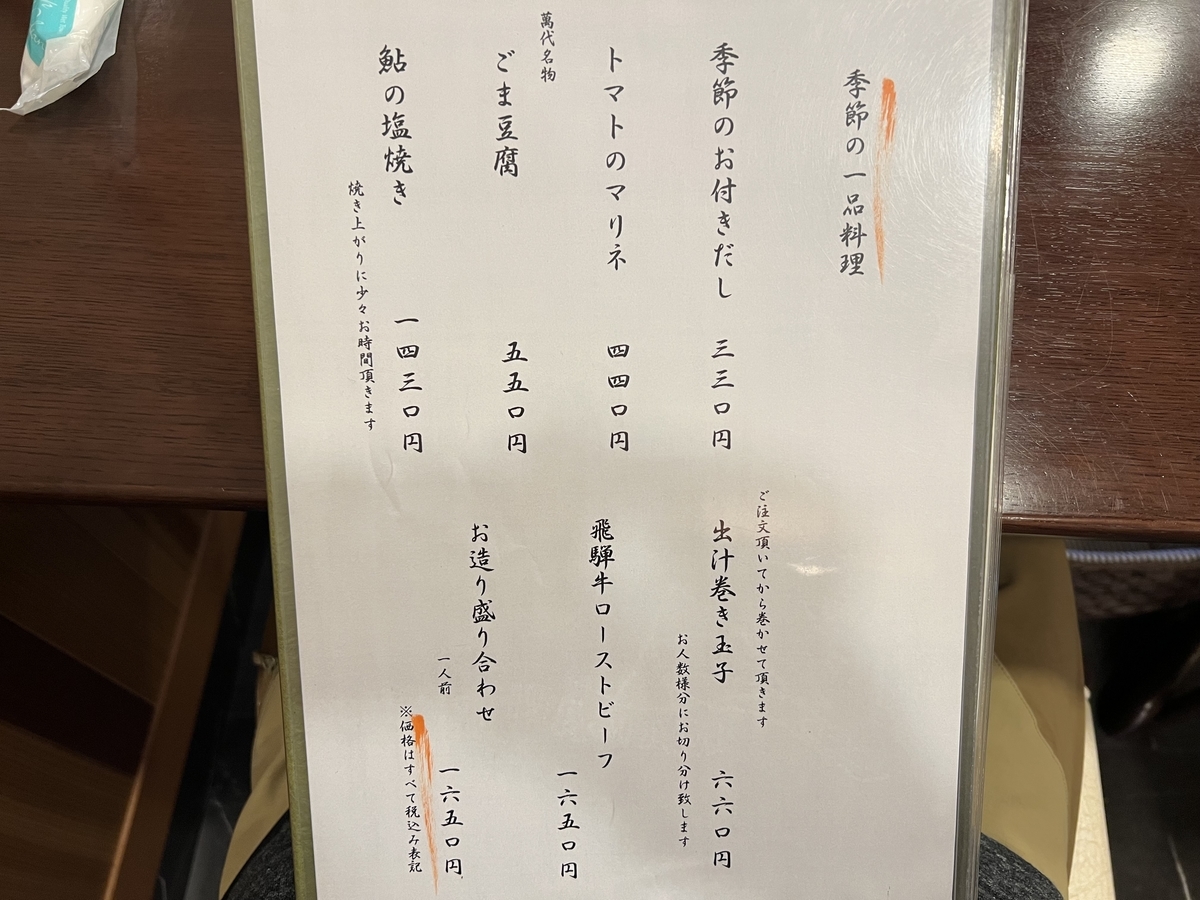 季節の一品料理
季節のお付きだし 三三〇円
トマトのマリネ 四四〇円
萬代名物
ごま豆腐 五五〇円
鮎の塩焼き 一四三〇円
焼き上がりに少々お時間頂きます
ご注文頂いてから巻かせて頂きます
出汁巻き玉子 六六〇円
お人数様分にお切り分け致します
飛騨牛ローストビーフ 一六五〇円
お造り盛り合わせ
一人前 一六五〇円
※価格はすべて税込み表記